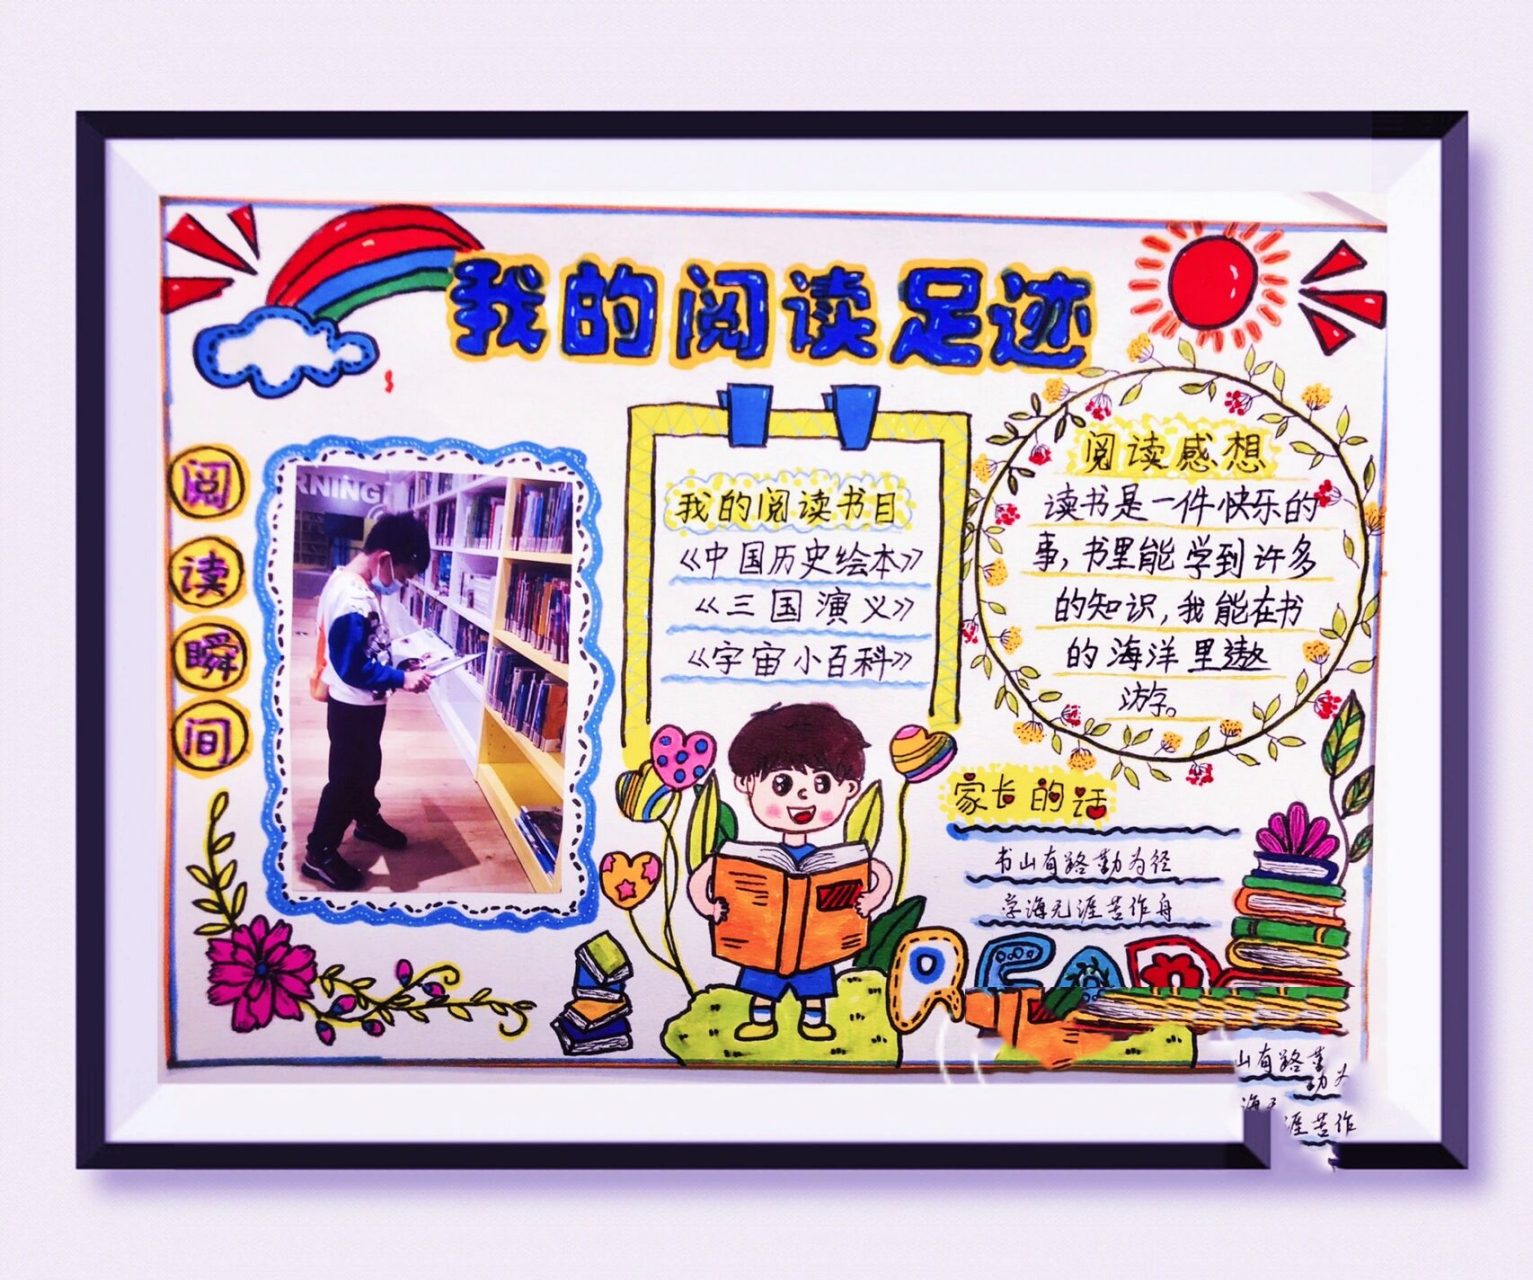 我的阅读足迹
阅读瞬间
RNING
我的阅读书目
《中国历史绘本》
《三国演义》
《宇宙小百科》
阅读感想
读书是一件快乐的
事,书里能学到许多
的知识,我能在书
的海洋里遨
游。
家长的话
书山有路勤为径
学海无涯苦作舟
READ
山有路勤
涯苦作